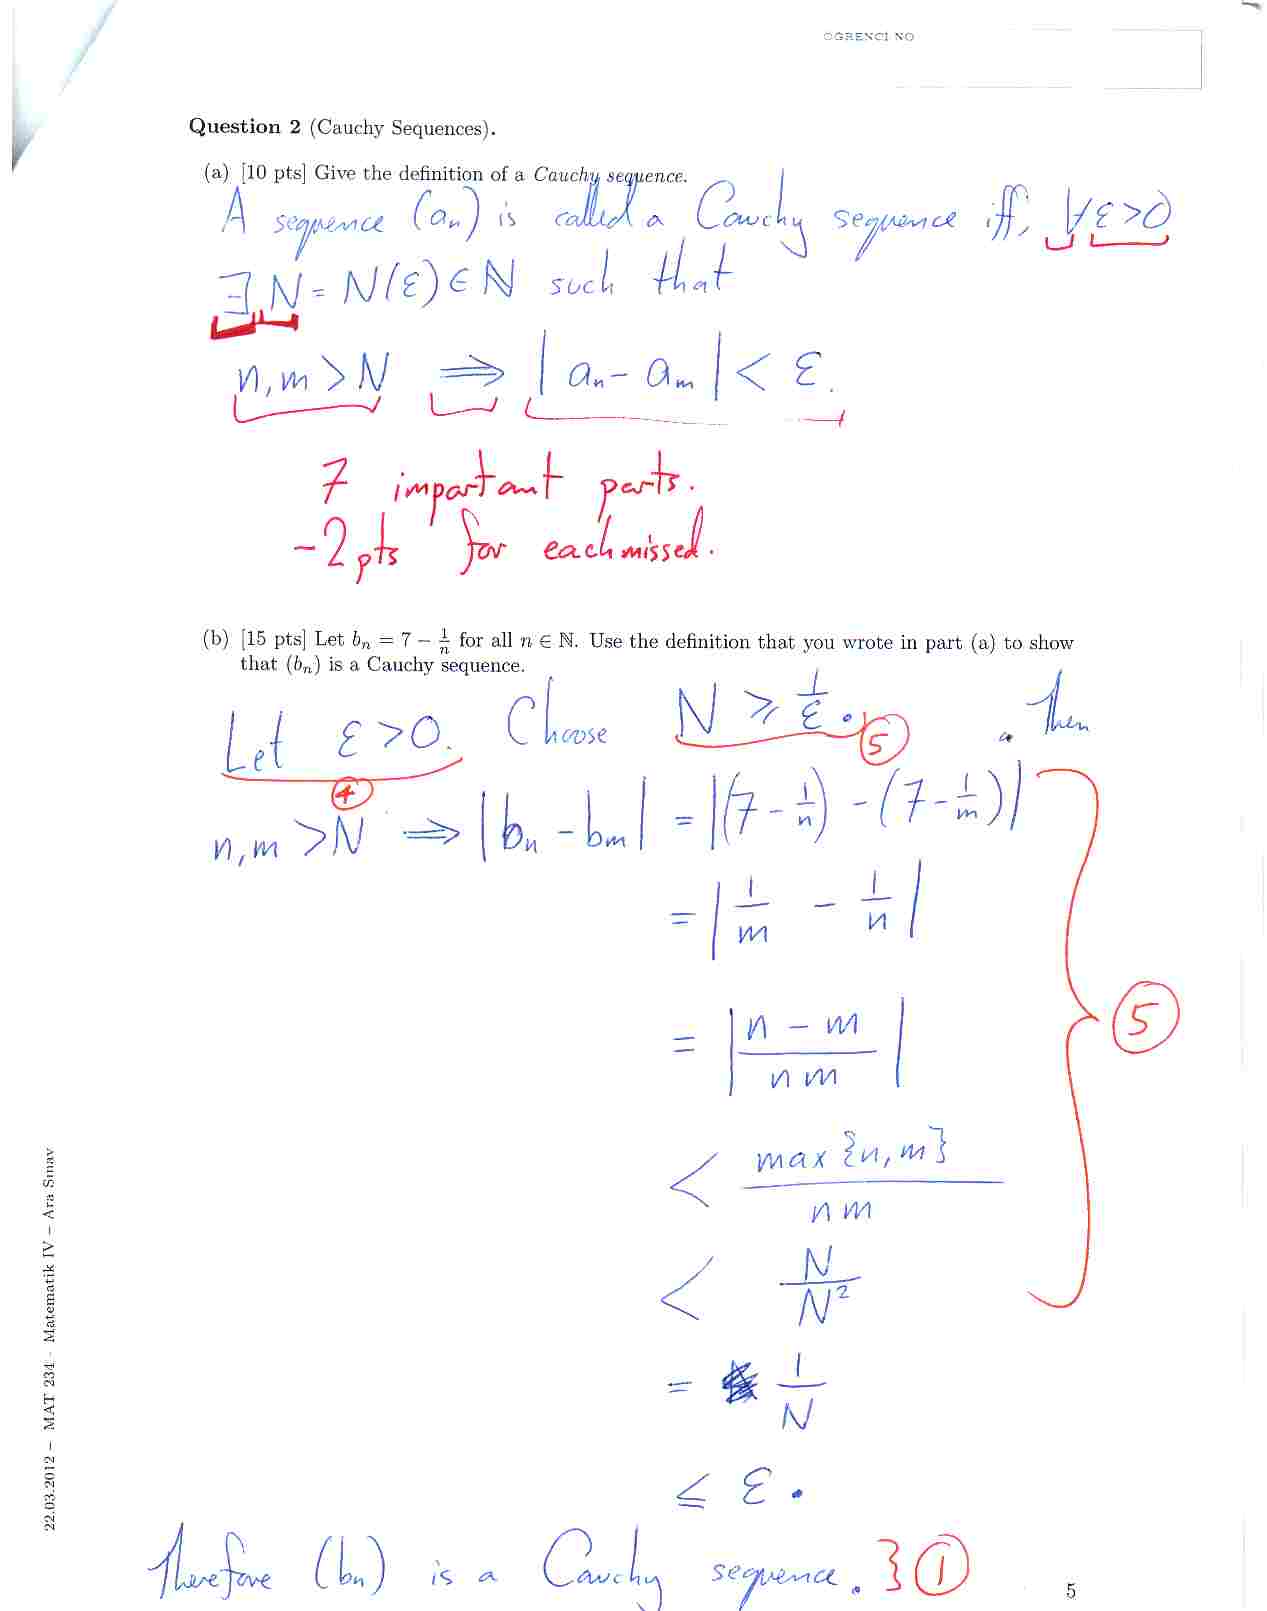 ÖĞRENCİ NO
Question 2 (Cauchy Sequences).
(a) [10 pts] Give the definition of a Cauchy sequence.
A sequence (aₙ) is called a Cauchy sequence iff, ∀ε>0
∃ N = N(ε) ∈ ℕ such that
n,m > N ⟹ |aₙ - aₘ| < ε.
7 important parts.
-2pts for each missed.
(b) [15 pts] Let bₙ = 7 − 1/n for all n ∈ ℕ. Use the definition that you wrote in part (a) to show
that (bₙ) is a Cauchy sequence.
Let ε>0. Choose N ⩾ 1/ε. ⑤ . Then
④
n,m > N ⟹ |bₙ - bₘ| = |(7 - 1/n) - (7 - 1/m)|
= |1/m - 1/n|
= |(n - m)/(nm)| ⑤
< max{n,m}/(nm)
< N/N²
= 1/N
≤ ε.
Therefore (bₙ) is a Cauchy sequence. } ①
5
22.03.2012 – MAT 234 - Matematik IV – Ara Sınav